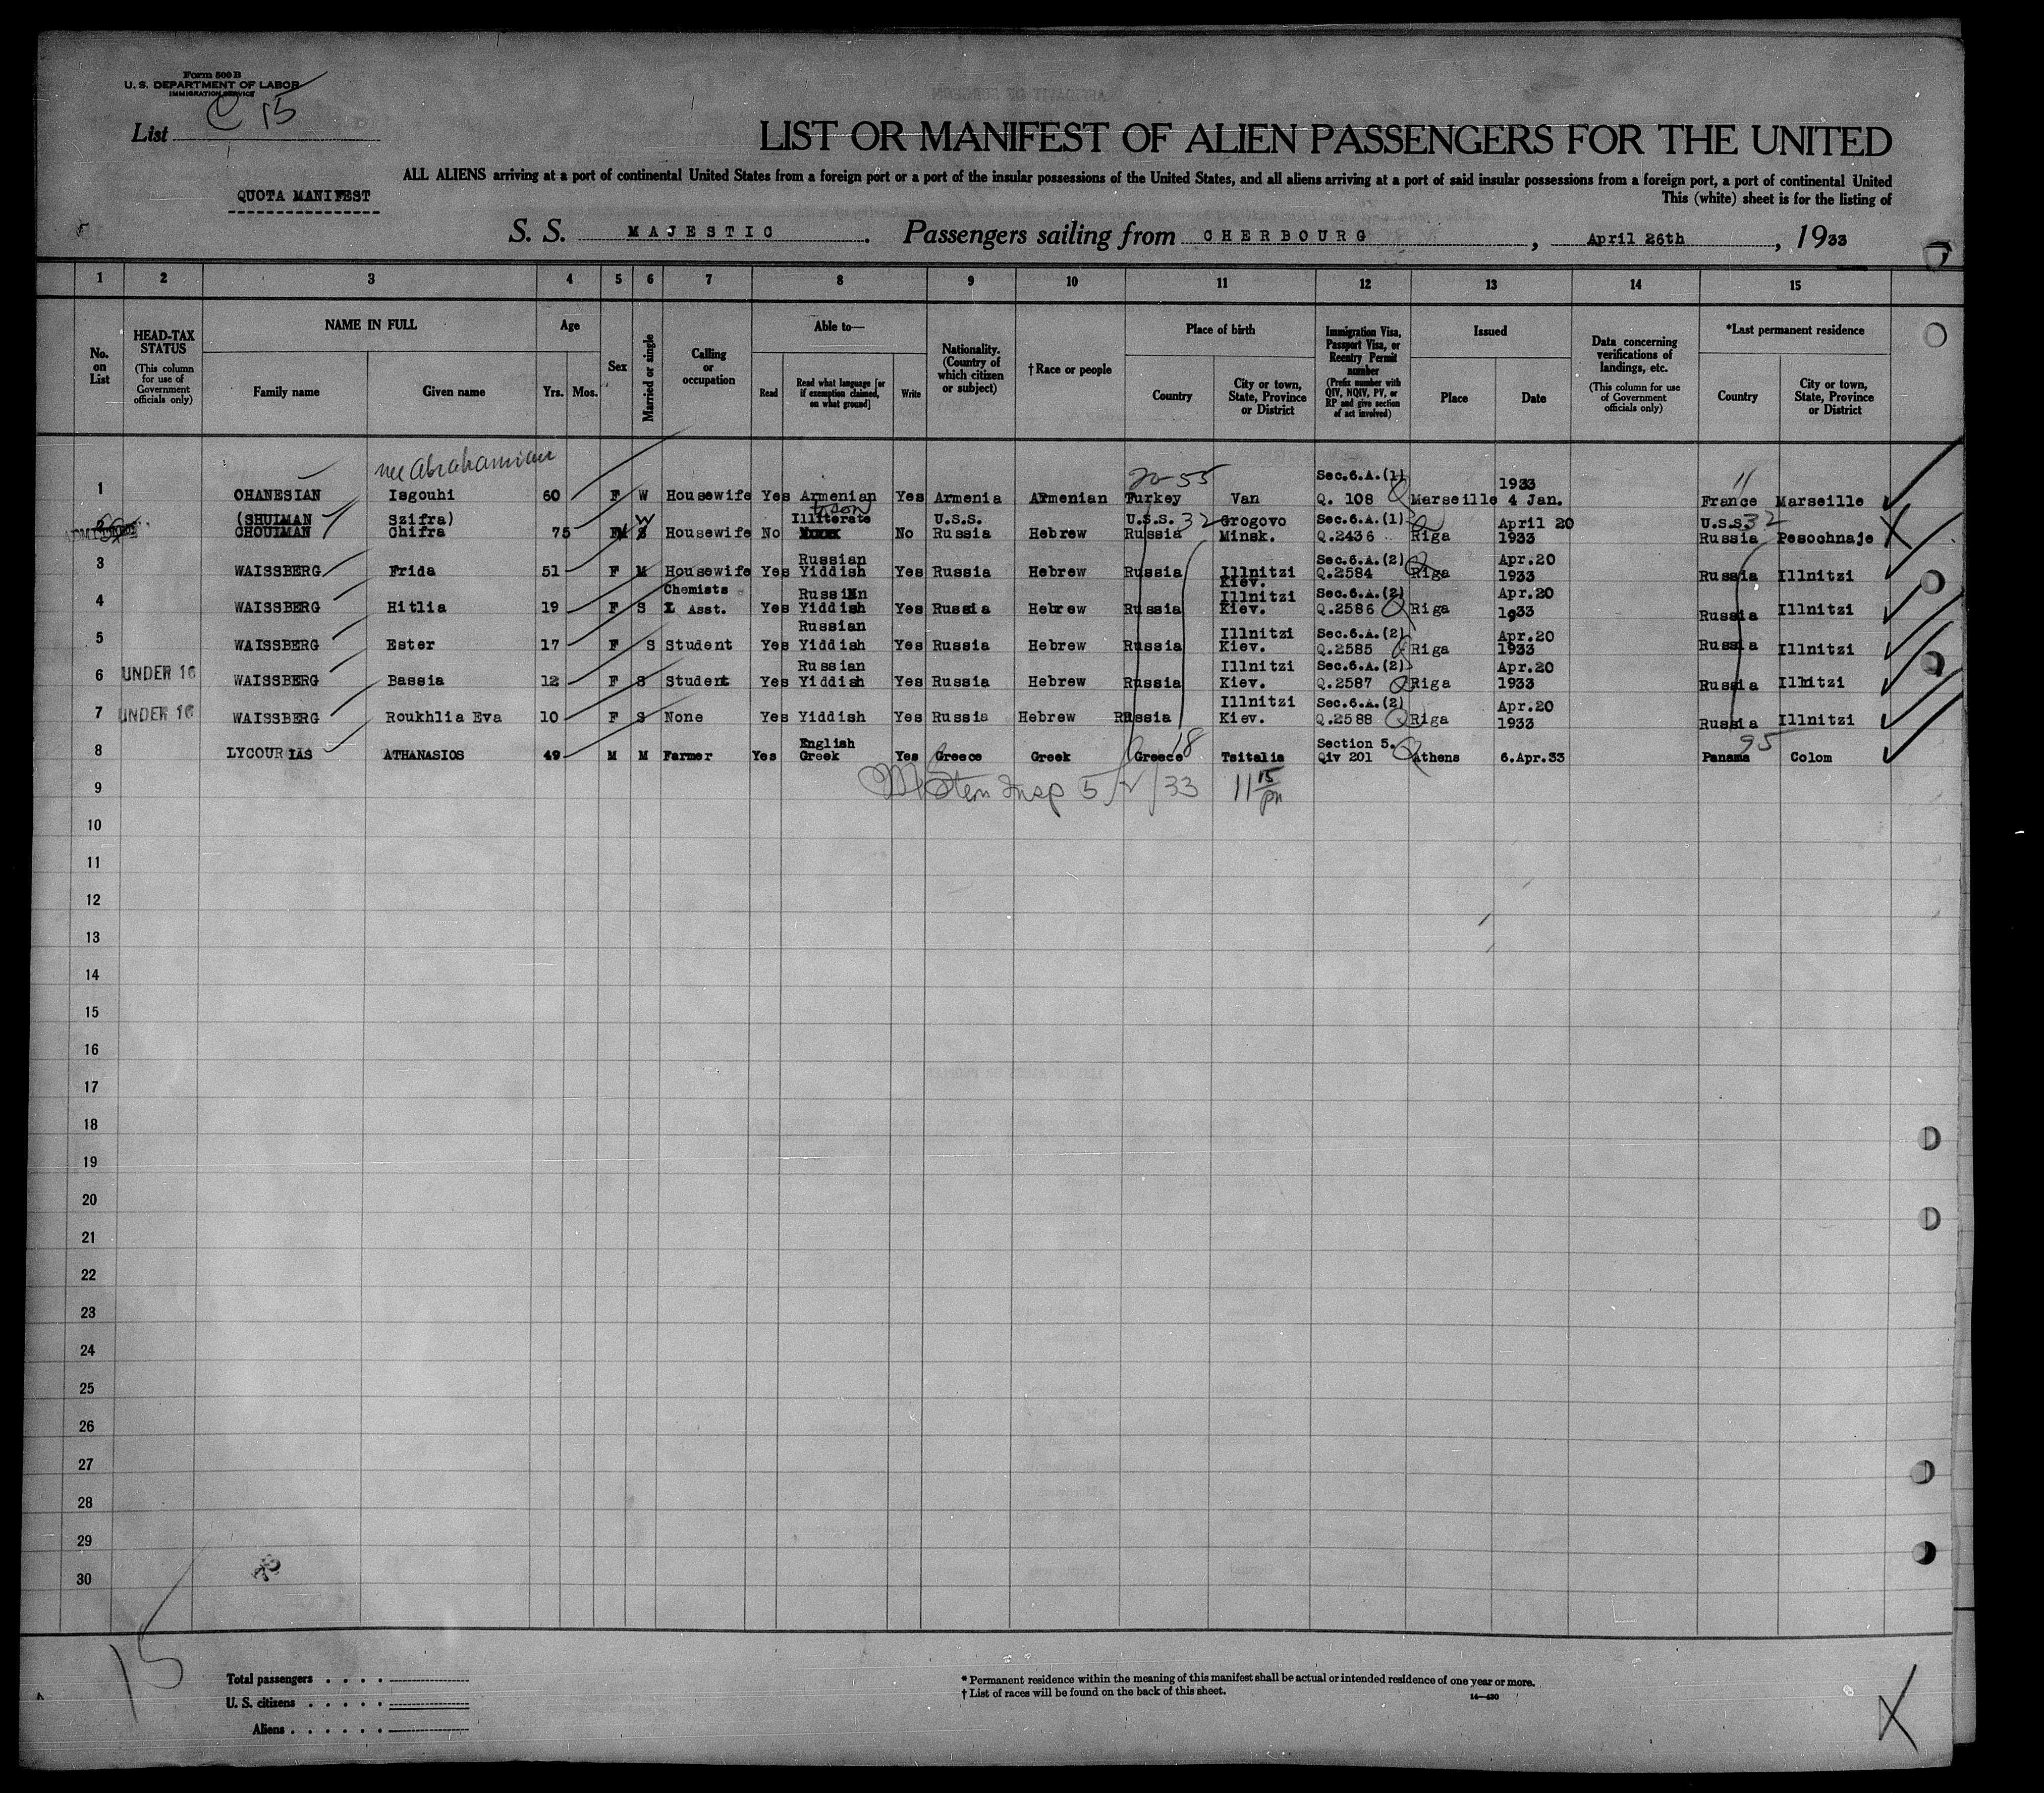 Form 500 B
U. S. DEPARTMENT OF LABOR
IMMIGRATION SERVICE
List C 15
LIST OR MANIFEST OF ALIEN PASSENGERS FOR THE UNITED
ALL ALIENS arriving at a port of continental United States from a foreign port or a port of the insular possessions of the United States, and all aliens arriving at a port of said insular possessions from a foreign port, a port of continental United
QUOTA MANIFEST
This (white) sheet is for the listing of
S. S. MAJESTIC. Passengers sailing from CHERBOURG, April 26th, 1933
1 2 3 4 5 6 7 8 9 10 11 12 13 14 15
No. on List
HEAD-TAX STATUS (This column for use of Government officials only)
NAME IN FULL
Family name Given name
Age
Yrs. Mos.
Sex
Married or single
Calling or occupation
Able to—
Read Read what language [or if exemption claimed, on what ground] Write
Nationality. (Country of which citizen or subject)
†Race or people
Place of birth
Country City or town, State, Province or District
Immigration Visa, Passport Visa, or Reentry Permit number (Prefix number with QIV, NQIV, PV, or RP and give section of act involved)
Issued
Place Date
Data concerning verifications of landings, etc. (This column for use of Government officials only)
*Last permanent residence
Country City or town, State, Province or District
nee Abrahamian 20-55 Sec.6.A.(1) 1933 11
1 OHANESIAN Isgouhi 60 F W Housewife Yes Armenian Yes Armenia Armenian Turkey Van Q. 108 Marseille 4 Jan. France Marseille
(SHUIMAN Szifra) W Illiterate U.S.S. U.S.S. 32 Grogovo Sec.6.A.(1) April 20 U.S.S. 32
2 CHOUIMAN Chifra 75 F S Housewife No No Russia Hebrew Russia Minsk. Q.2436 Riga 1933 Russia Pesochnaje
Russian Sec.6.A.(2) Apr.20
3 WAISSBERG Frida 51 F M Housewife Yes Yiddish Yes Russia Hebrew Russia Illnitzi Kiev. Q.2584 Riga 1933 Russia Illnitzi
Chemists Russian Illnitzi Sec.6.A.(2) Apr.20
4 WAISSBERG Hitlia 19 F S L Asst. Yes Yiddish Yes Russia Hebrew Russia Kiev. Q.2586 Riga 1933 Russia Illnitzi
Russian Illnitzi Sec.6.A.(2) Apr.20
5 WAISSBERG Ester 17 F S Student Yes Yiddish Yes Russia Hebrew Russia Kiev. Q.2585 Riga 1933 Russia Illnitzi
Russian Illnitzi Sec.6.A.(2) Apr.20
6 UNDER 16 WAISSBERG Bassia 12 F S Student Yes Yiddish Yes Russia Hebrew Russia Kiev. Q.2587 Riga 1933 Russia Illnitzi
Illnitzi Sec.6.A.(2) Apr.20
7 UNDER 16 WAISSBERG Roukhlia Eva 10 F S None Yes Yiddish Yes Russia Hebrew Russia Kiev. Q.2588 Riga 1933 Russia Illnitzi
English 18 Section 5. 95
8 LYCOURIAS ATHANASIOS 49 M M Farmer Yes Greek Yes Greece Greek Greece Tsitalia Qiv 201 Athens 6.Apr.33 Panama Colom
9 Insp 5/2/33 11 15 pm
10
11
12
13
14
15
16
17
18
19
20
21
22
23
24
25
26
27
28
29
30
15
Total passengers
U. S. citizens
Aliens
* Permanent residence within the meaning of this manifest shall be actual or intended residence of one year or more.
† List of races will be found on the back of this sheet.
14—430
X